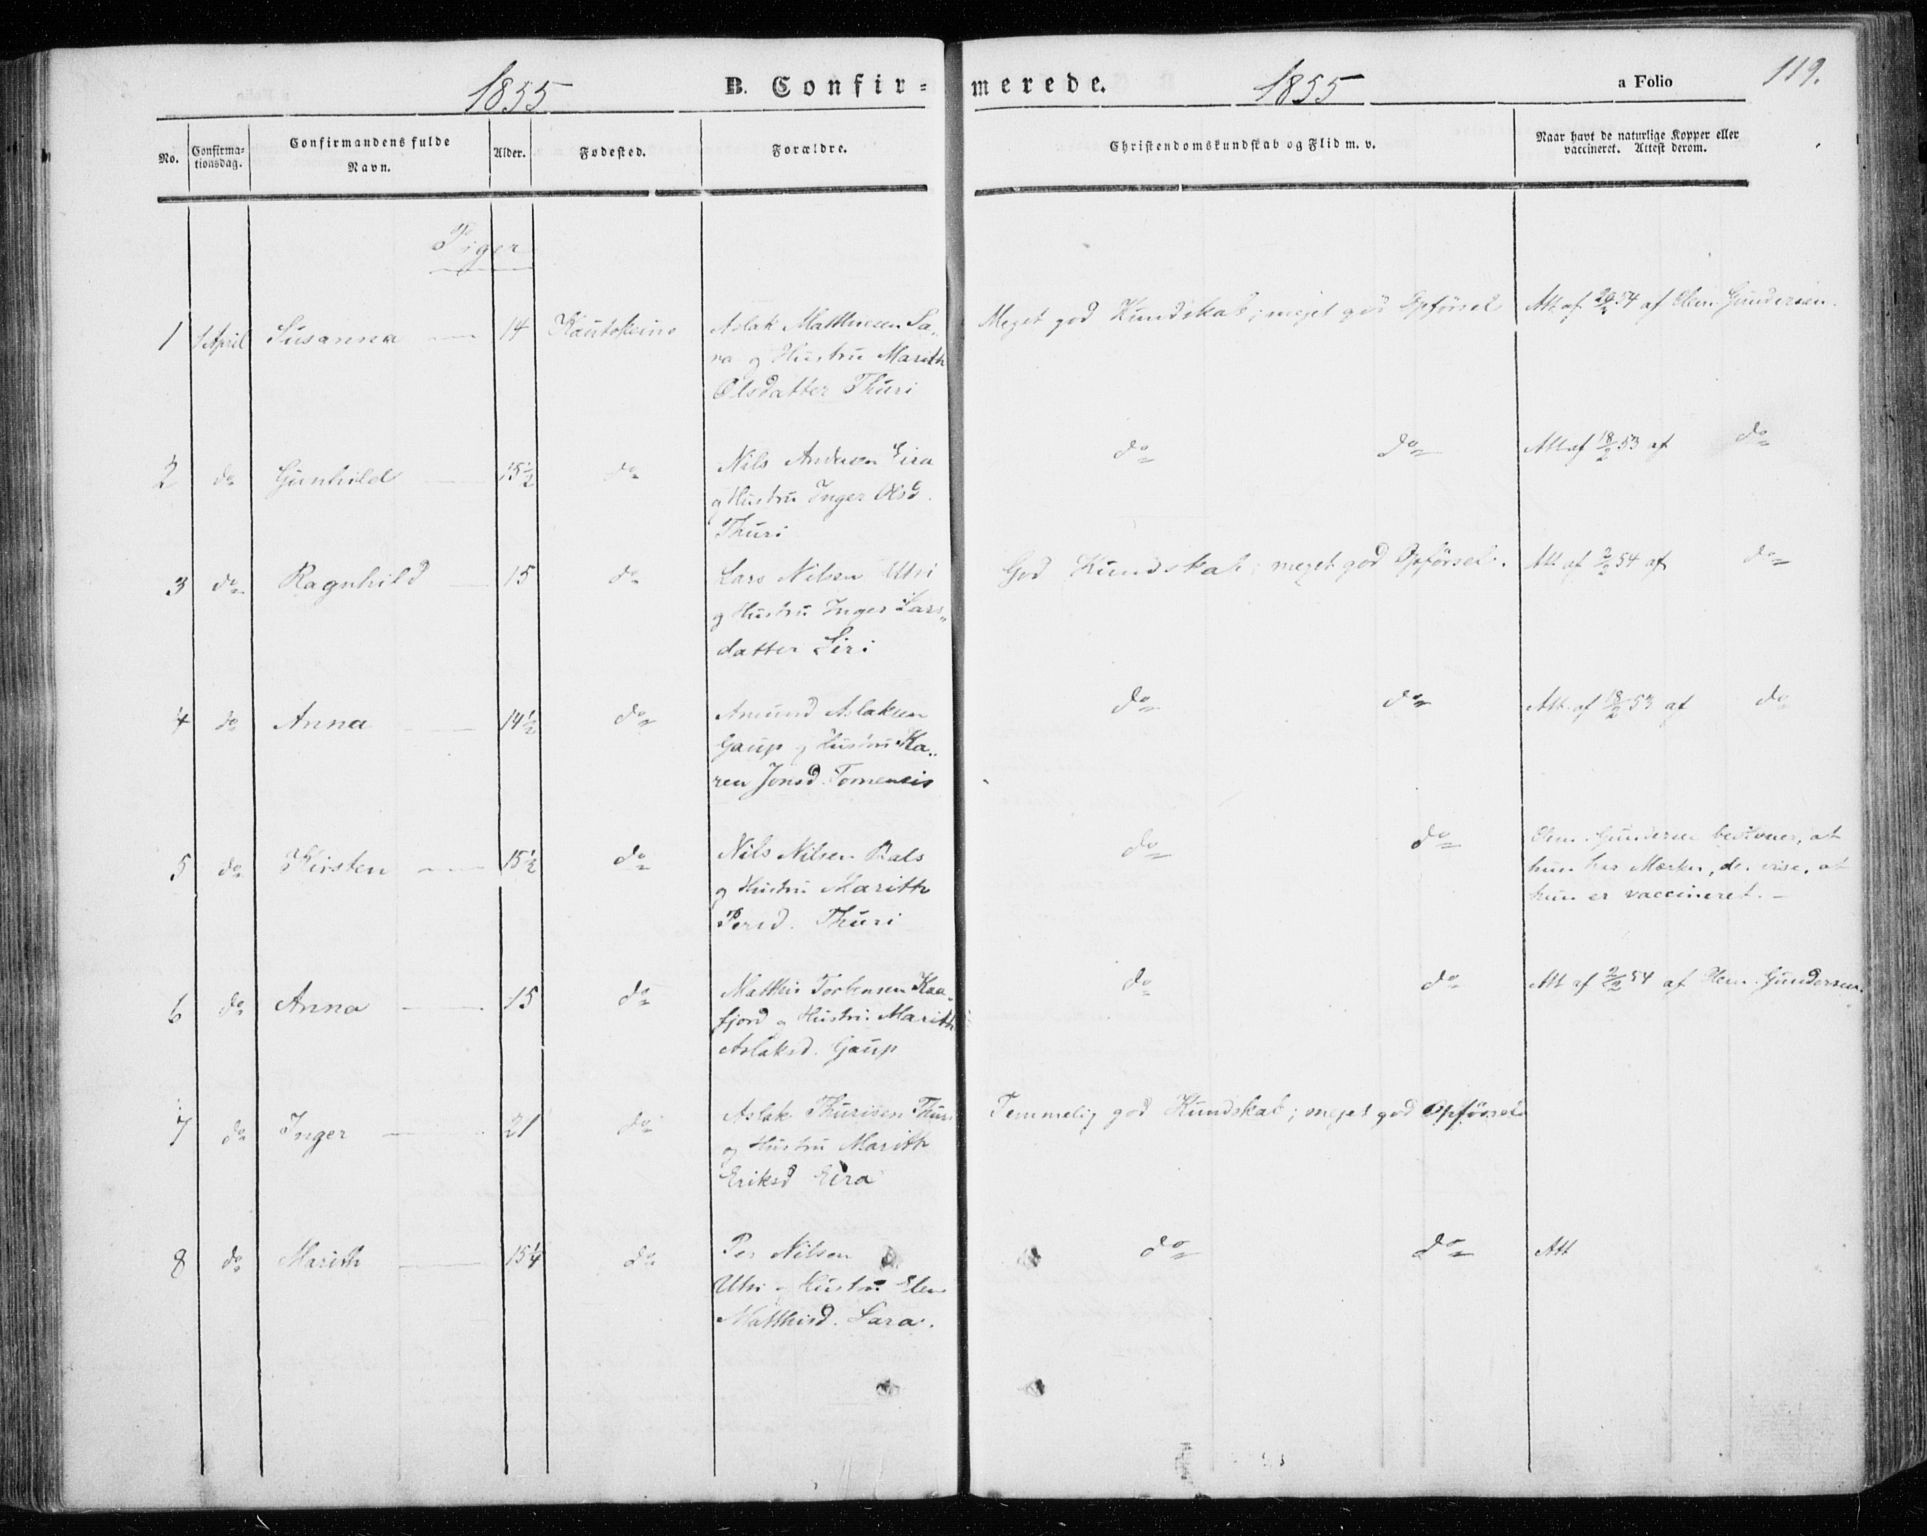 1855 B. Confir- merede. 1855 a Folio 119.
No. Confirma-tionsdag. Confirmandens fulde Navn. Alder. Fødested. Forældre. Christendomskundskab og Flid m. v. Naar havt de naturlige Kopper eller vaccineret. Attest derom.
Piger
1 1 April Susanna 14 Kautokeino Aslak Matthisen Sa- Meget god Kundskab; meget god Opförsel Att. af 54 af Klem. Gundersen.
ra og Hustru Marith
Olsdatter Thuri
2 do Gunhild 15½ do Nils Andersen Eira do do Att af 18/2 53 af do
og Hustru Inger Olsd.
Thuri
3 do Ragnhild 15 do Lars Nilsen Utsi God Kundskab; meget god Opförsel. Att. af 2/2 54 af do
og Hustru Inger Lars-
datter Siri
4 do Anna 14½ do Amund Aslaksen do do Att. af 18/2 53 af do
Gaup og Hustru Ka-
ren Jonsd. Tornensis
5 do Kirsten 15½ do Nils Nilsen Bals do do Klem. Gundersen bevidner, at
og Hustru Marith hun har Mærker, der vise, at
Persd. Thuri hun er vaccineret.
6 do Anna 15 do Matthis Torbensen Kaa- do do Att af 2/2 54 af Klem. Gundersen.
fjord og Hustru Marith
Aslaksd. Gaup
7 do Inger 21 do Aslak Thurisen Thuri Temmelig god Kundskab; meget god Opförsel
og Hustru Marith
Eriksd Eira
8 do Marith 15¼ do Per Nilsen do do Att
Utsi og Hustru Elen
Matthisd. Sara.